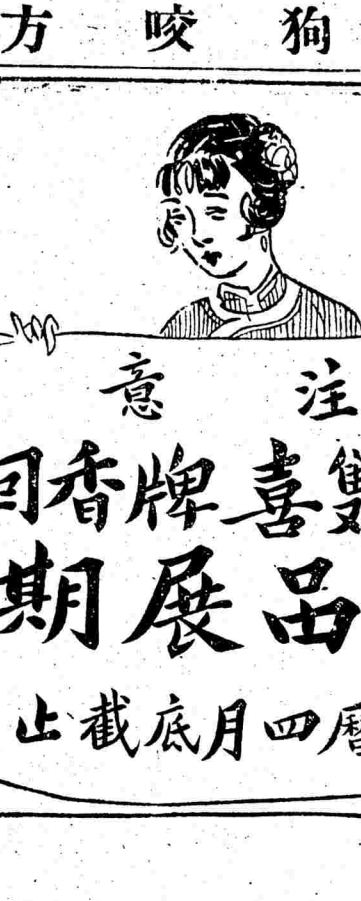 狗咬方
注意
雙喜牌香
品展期
曆四月底截止